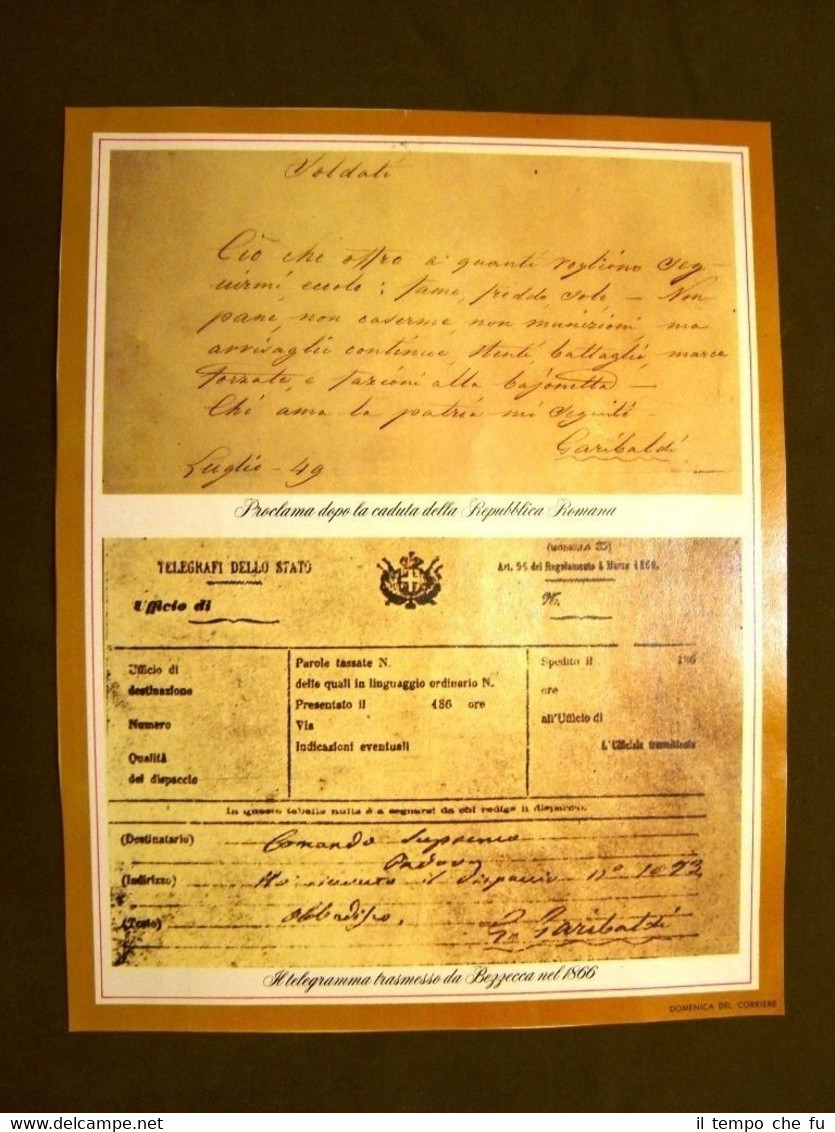 Soldati
Ciò che offro a quanti vogliono seg-
uirmi, eccolo: fame, freddo sole - Non
pane, non caserme, non munizioni, ma
avvisaglie continue, stenti, battaglie, marce
forzate, e fazioni alla bajonetta -
Chi ama la patria mi seguiti -
Garibaldi
Luglio - 49
Proclama dopo la caduta della Repubblica Romana
TELEGRAFI DELLO STATO
(MODELLO 35)
Art. 94 del Regolamento 4 Marzo 1860.
Ufficio di
N.
Ufficio di
destinazione
Numero
Qualità
del dispaccio
Parole tassate N.
delle quali in linguaggio ordinario N.
Presentato il 186 ore
Via
Indicazioni eventuali
Spedito il 186
ore
all'Ufficio di
L'Ufficiale trasmittente
In questa tabella nulla è a segnarsi da chi redige il dispaccio.
(Destinatario) Comando Supremo
Padova
(Indirizzo) Ho ricevuto il dispaccio Nº 1073
(Testo) Obbedisco. G Garibaldi
Il telegramma trasmesso da Bezzecca nel 1866
DOMENICA DEL CORRIERE
www.maremagnum.com
il tempo che fu